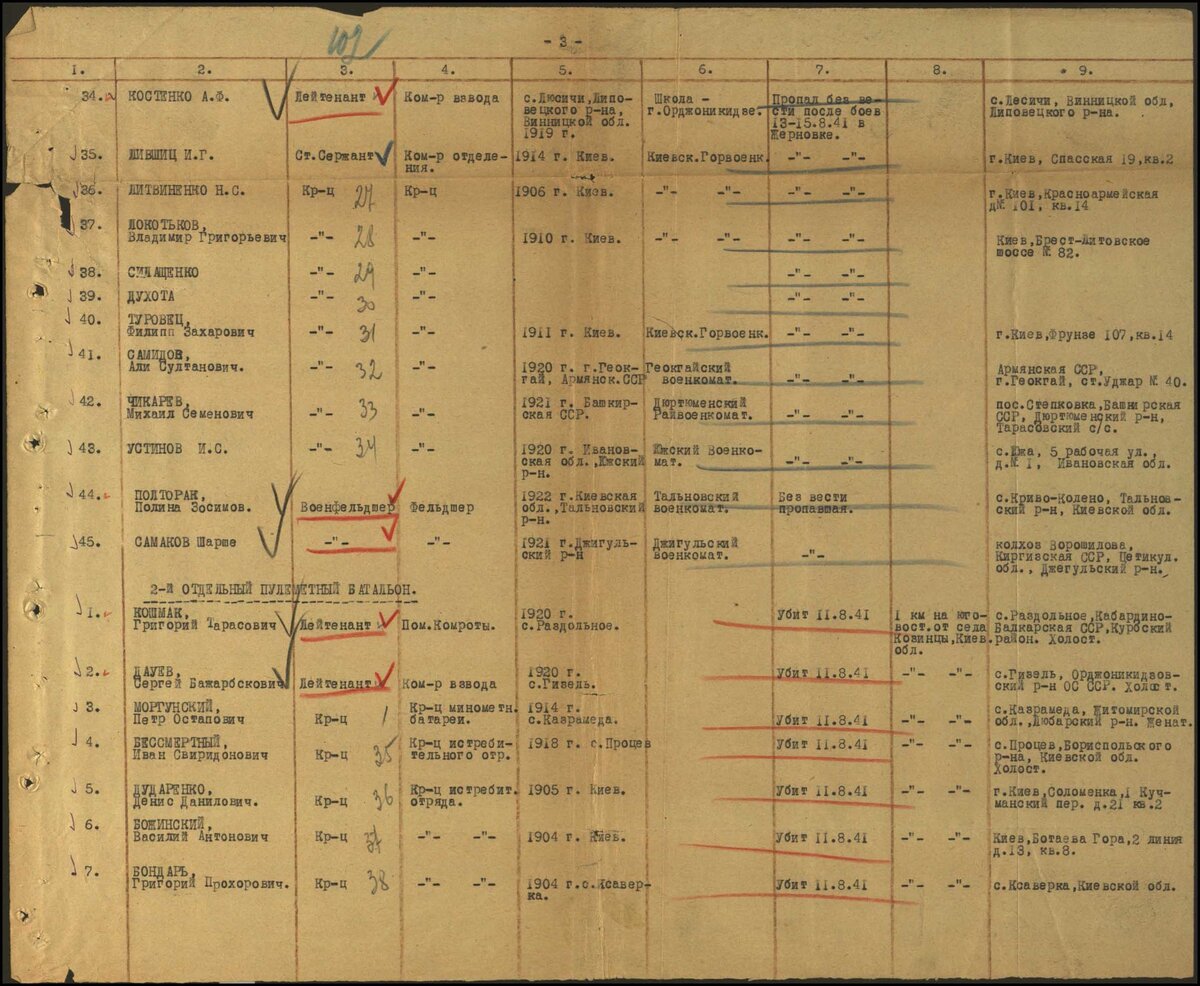 102
- 3 -
1. 2. 3. 4. 5. 6. 7. 8. 9.
34. КОСТЕНКО А.Ф. Лейтенант Ком-р взвода с.Люсичи,Липовецкого р-на, Винницкой обл. 1919 г. Школа - г.Орджоникидзе. Пропал без вести после боев 13-15.8.41 в Жерновке. с.Лесичи, Винницкой обл, Липовецкого р-на.
35. ЛИВШИЦ И.Г. Ст.Сержант Ком-р отделения. 1914 г. Киев. Киевск.Горвоенк. -"- -"- г.Киев, Спасская 19,кв.2
36. ЛИТВИНЕНКО Н.С. Кр-ц 27 Кр-ц 1906 г. Киев. -"- -"- -"- -"- г.Киев,Красноармейская д№ 101, кв.14
37. ЛОКОТЬКОВ, Владимир Григорьевич -"- 28 -"- 1910 г. Киев. -"- -"- -"- -"- Киев,Брест-Литовское шоссе № 82.
38. СИЛАЩЕНКО -"- 29 -"- -"- -"-
39. ДУХОТА -"- 30 -"- -"- -"-
40. ТУРОВЕЦ, Филипп Захарович -"- 31 -"- 1911 г. Киев. Киевск.Горвоенк. -"- -"- г.Киев,Фрунзе 107,кв.14
41. САМИДОВ, Али Султанович. -"- 32 -"- 1920 г. г.Геокгай, Армянск.ССР Геокгайский военкомат. -"- -"- Армянская ССР, г.Геокгай, ст.Уджар № 40.
42. ЧИКАРЕВ, Михаил Семенович -"- 33 -"- 1921 г. Башкирская ССР. Дюртюменский Райвоенкомат. -"- -"- пос.Степковка,Башкирская ССР, Дюртюменский р-н, Тарасовский с/с.
43. УСТИНОВ И.С. -"- 34 -"- 1920 г. Ивановская обл.,Южский р-н. Южский Военкомат. -"- -"- с.Южа, 5 рабочая ул., д.№ 1, Ивановская обл.
44. ПОЛТОРАК, Полина Зосимов. Военфельдшер Фельдшер 1922 г.Киевская обл.,Тальновский р-н. Тальновский военкомат. Без вести пропавшая. с.Криво-Колено, Тальновский р-н, Киевской обл.
45. САМАКОВ Шарше -"- -"- 1921 г.Джигульский р-н Джигульский военкомат. -"- колхоз Ворошилова, Киргизская ССР, Цетикул. обл., Джегульский р-н.
2-й ОТДЕЛЬНЫЙ ПУЛЕМЕТНЫЙ БАТАЛЬОН.
1. КОШМАК, Григорий Тарасович Лейтенант Пом.Комроты. 1920 г. с.Раздольное. Убит 11.8.41 1 км на юго-вост.от села Козинцы,Киев. обл. с.Раздольное,Кабардино-Балкарская ССР,Курбский район. Холост.
2. ДАУЕВ, Сергей Бажарбскович Лейтенант Ком-р взвода 1920 г. с.Гизель. Убит 11.8.41 -"- -"- с.Гизель, Орджоникидзовский р-н ОС ССР. Холост.
3. МОРГУНСКИЙ, Петр Остапович Кр-ц 1 Кр-ц минометн. батареи. 1914 г. с.Казрамеда. Убит 11.8.41 -"- -"- с.Казрамеда, Житомирской обл.,Любарский р-н. Женат.
4. БЕССМЕРТНЫЙ, Иван Свиридонович Кр-ц 35 Кр-ц истребительного отр. 1918 г. с.Процев Убит 11.8.41 -"- -"- с.Процев,Бориспольского р-на, Киевской обл. Холост.
5. ДУДАРЕНКО, Денис Данилович. Кр-ц 36 Кр-ц истребит. отряда. 1905 г. Киев. Убит 11.8.41 -"- -"- г.Киев,Соломенка,1 Кучманский пер. д.21 кв.2
6. БОЖИНСКИЙ, Василий Антонович Кр-ц 37 -"- -"- 1904 г. Киев. Убит 11.8.41 -"- -"- Киев,Ботаева Гора,2 линия д.13, кв.8.
7. БОНДАРЬ, Григорий Прохорович. Кр-ц 38 -"- -"- 1904 г.с.Ксаверка. Убит 11.8.41 -"- -"- с.Ксаверка,Киевской обл.